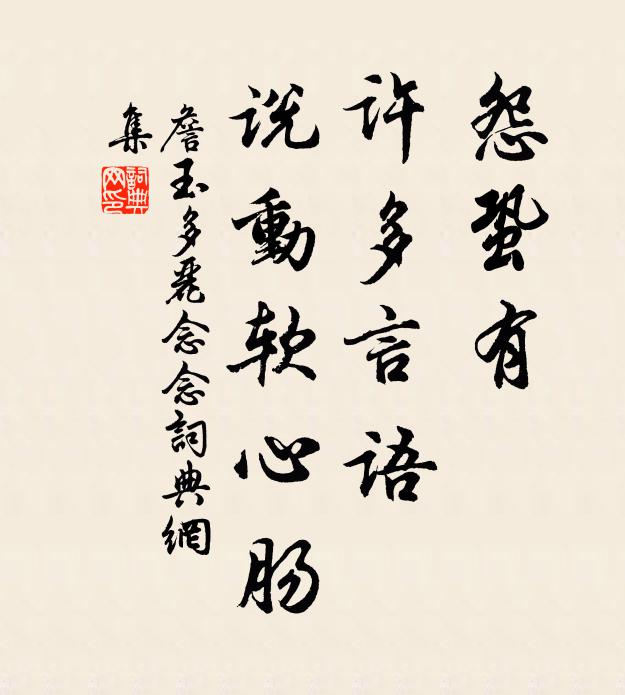 怨蛩有
许多言语
说動软心肠
詹玉多麗念念詞典網
集
詞典
网印